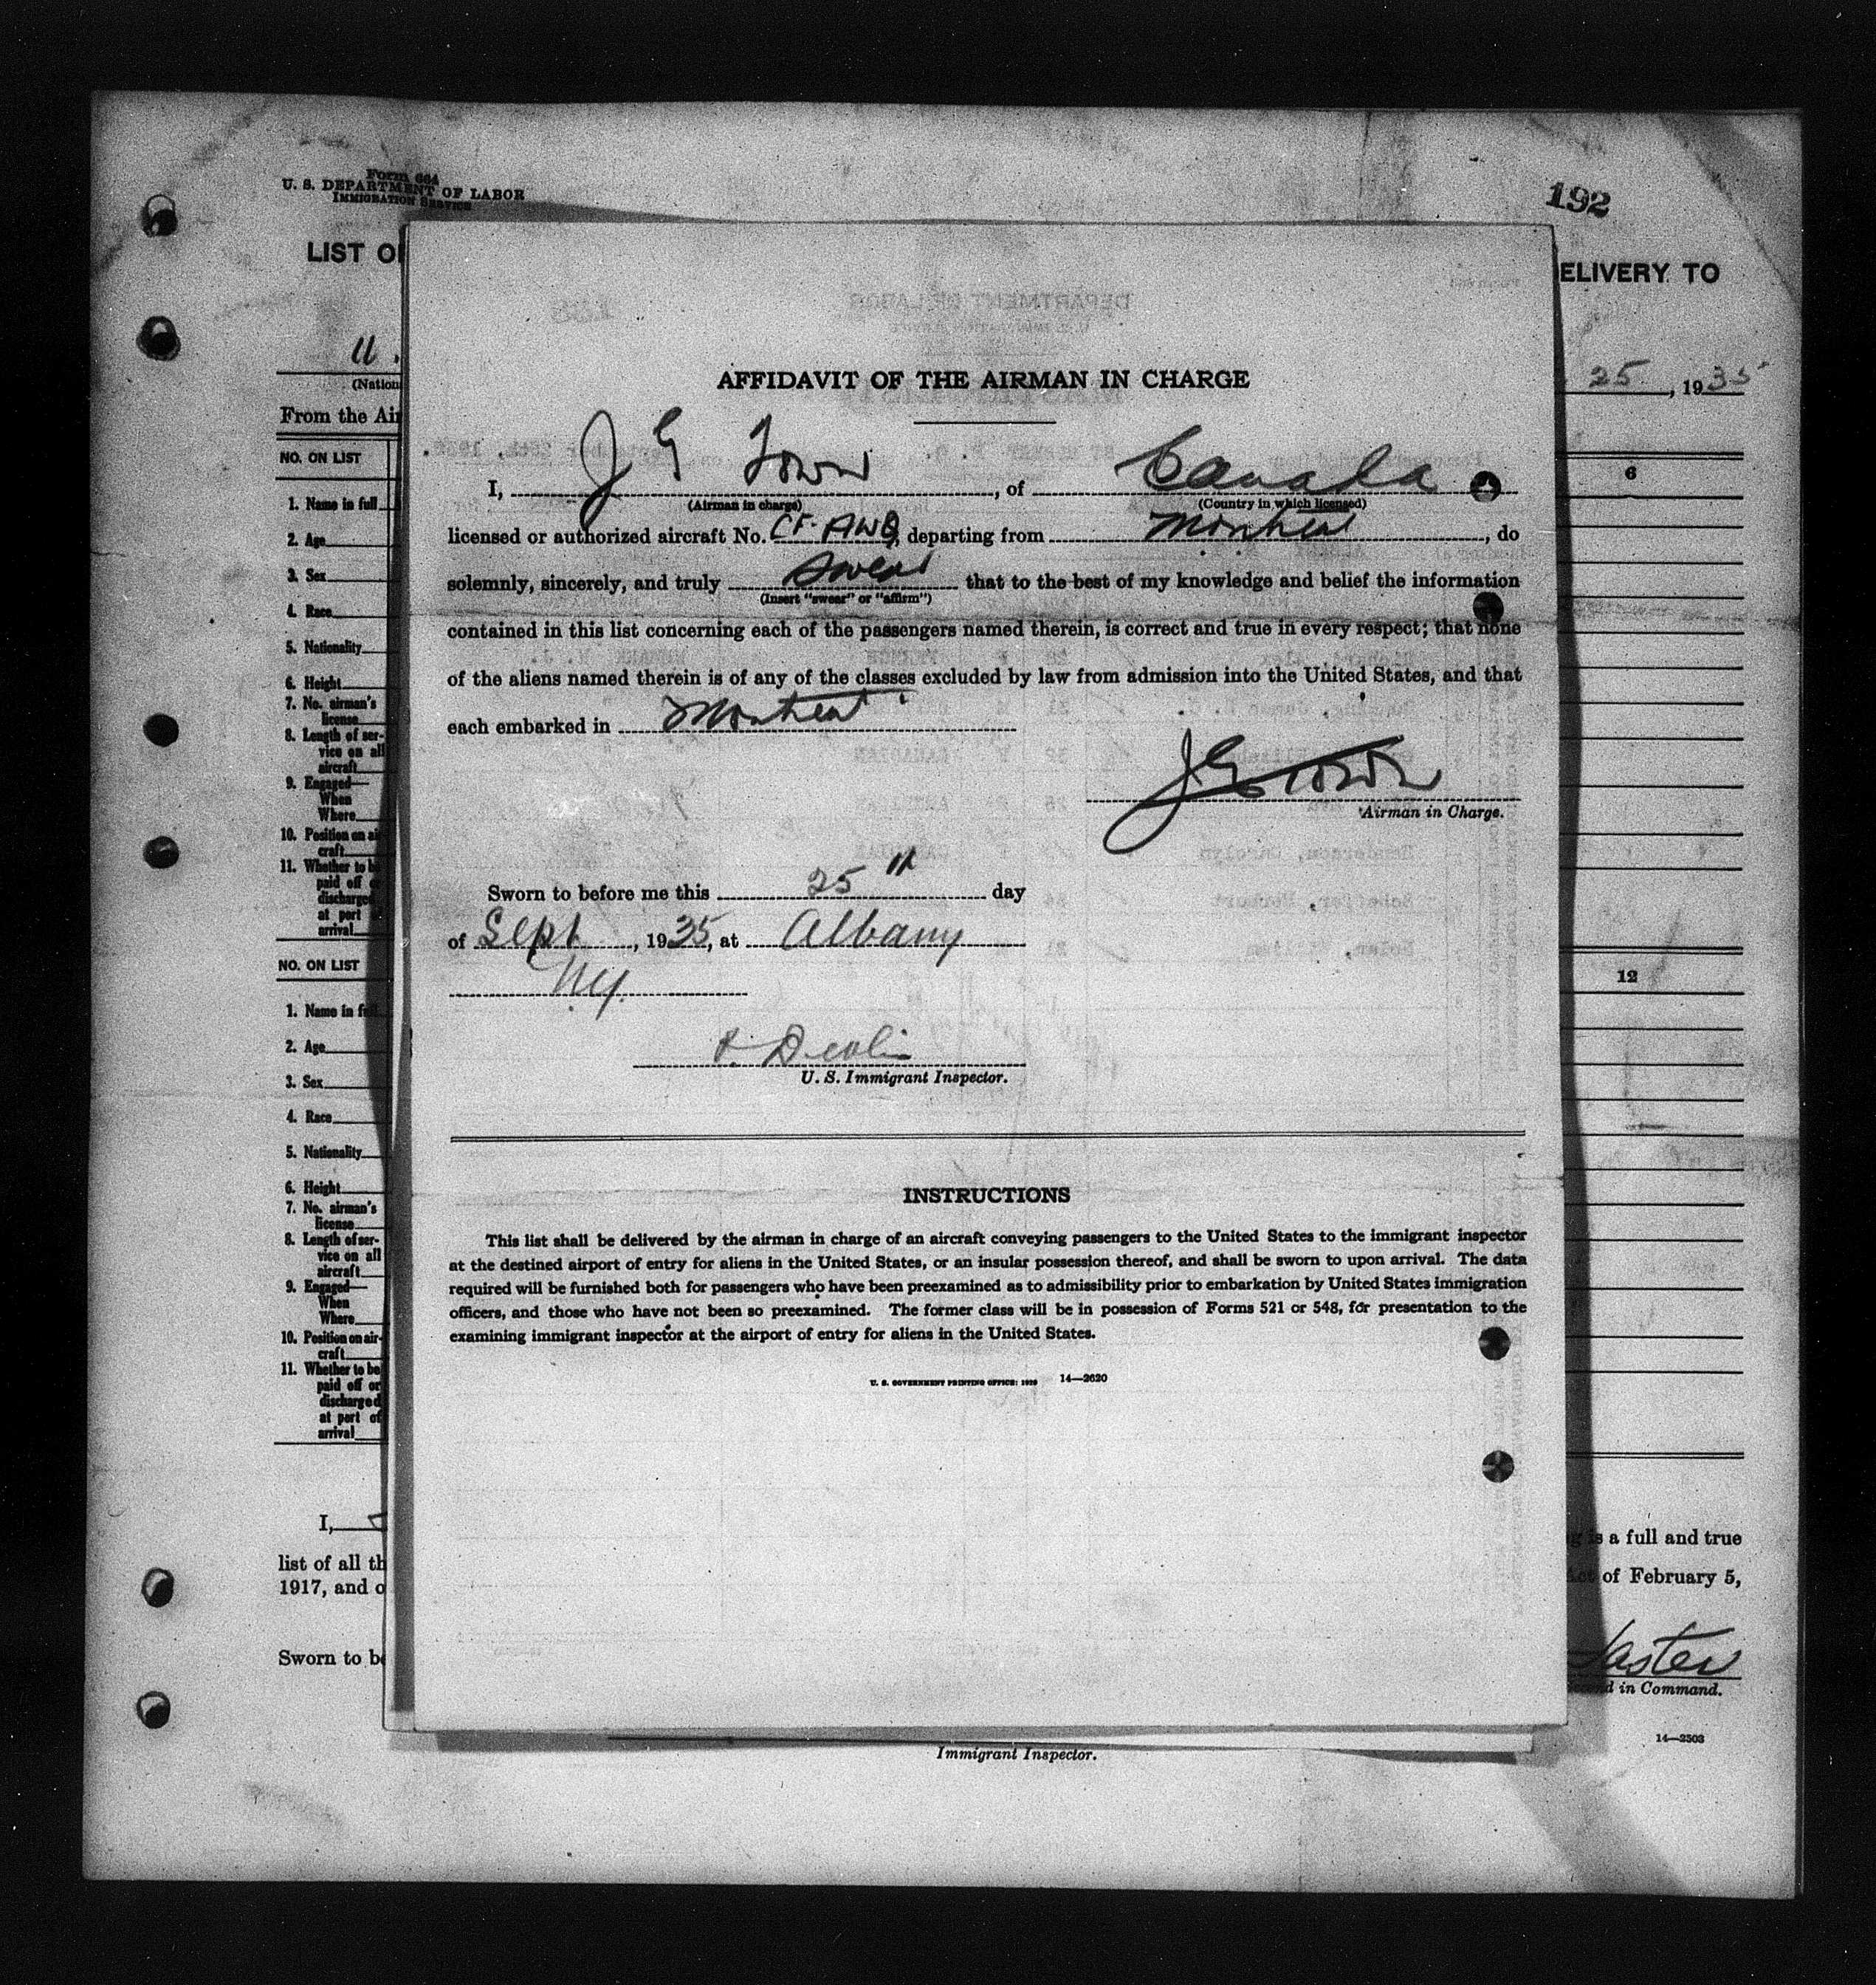 Form 664
U. S. DEPARTMENT OF LABOR
IMMIGRATION SERVICE
192
LIST O
ELIVERY TO
U.
(Nation
25, 1935
From the Air
NO. ON LIST
6
1. Name in full
2. Age
3. Sex
4. Race
5. Nationality
6. Height
7. No. airman's
license
8. Length of ser-
vice on all
aircraft
9. Engaged—
When
Where
10. Position on air
craft
11. Whether to be
paid off or
discharged
at port of
arrival
NO. ON LIST
12
1. Name in fu
2. Age
3. Sex
4. Race
5. Nationality
6. Height
7. No. airman's
license
8. Length of ser-
vice on all
aircraft
9. Engaged—
When
Where
10. Position on air-
craft
11. Whether to be
paid off or
discharged
at port of
arrival
I,
list of all th
1917, and o
Sworn to be
is a full and true
Act of February 5,
Second in Command.
14—2503
Immigrant Inspector.
AFFIDAVIT OF THE AIRMAN IN CHARGE
I, J G Town, of Canada
(Airman in charge) (Country in which licensed)
licensed or authorized aircraft No. CF-AWQ, departing from Montreal, do
solemnly, sincerely, and truly swear that to the best of my knowledge and belief the information
(Insert "swear" or "affirm")
contained in this list concerning each of the passengers named therein, is correct and true in every respect; that none
of the aliens named therein is of any of the classes excluded by law from admission into the United States, and that
each embarked in Montreal
J G Town
Airman in Charge.
Sworn to before me this 25th day
of Sept, 1935, at Albany
N.Y.
Devlin
U. S. Immigrant Inspector.
INSTRUCTIONS
This list shall be delivered by the airman in charge of an aircraft conveying passengers to the United States to the immigrant inspector
at the destined airport of entry for aliens in the United States, or an insular possession thereof, and shall be sworn to upon arrival. The data
required will be furnished both for passengers who have been preexamined as to admissibility prior to embarkation by United States immigration
officers, and those who have not been so preexamined. The former class will be in possession of Forms 521 or 548, for presentation to the
examining immigrant inspector at the airport of entry for aliens in the United States.
U. S. GOVERNMENT PRINTING OFFICE: 14—2620